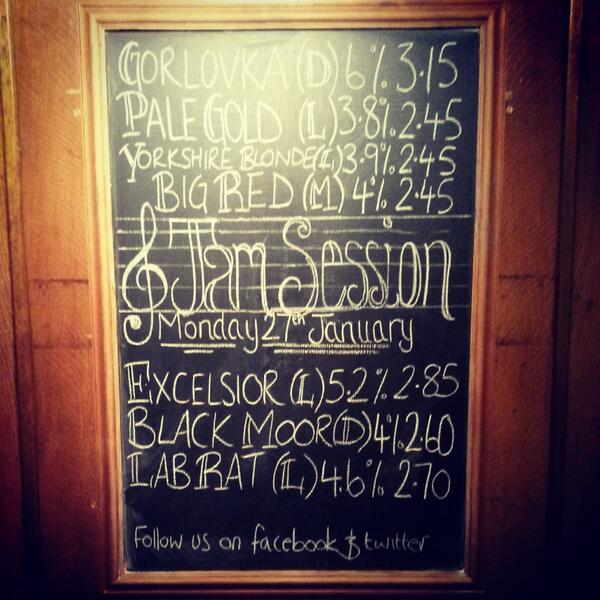 GORLOVKA (D) 6% 3.15
PALE GOLD (L) 3.8% 2.45
YORKSHIRE BLONDE (L) 3.9% 2.45
BIG RED (M) 4% 2.45
Jam Session
Monday 27th January
EXCELSIOR (L) 5.2% 2.85
BLACK MOOR (D) 4% 2.60
LAB RAT (L) 4.6% 2.70
Follow us on facebook & twitter